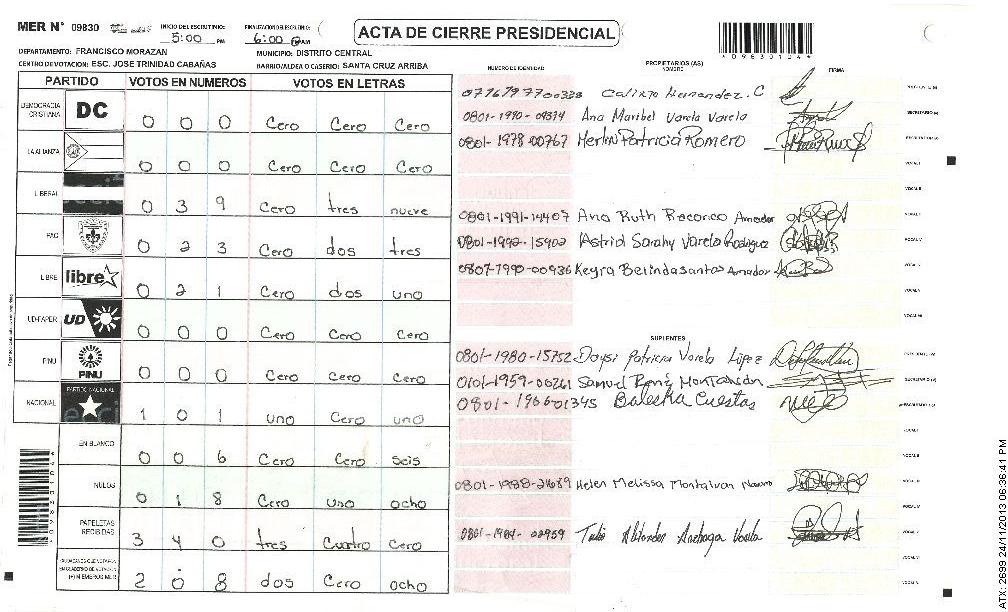 MER N° 09830 INICIO DEL ESCRUTINIO: 5:00 PM FINALIZACION DEL ESCRUTINIO: 6:00 PM
ACTA DE CIERRE PRESIDENCIAL
DEPARTAMENTO: FRANCISCO MORAZAN MUNICIPIO: DISTRITO CENTRAL
CENTRO DE VOTACION: ESC. JOSE TRINIDAD CABAÑAS BARRIO/ALDEA O CASERIO: SANTA CRUZ ARRIBA
PARTIDO VOTOS EN NUMEROS VOTOS EN LETRAS
DEMOCRACIA CRISTIANA DC 0 0 0 Cero Cero Cero
LA ALIANZA 0 0 0 Cero Cero Cero
LIBERAL 0 3 9 Cero tres nueve
PAC 0 2 3 Cero dos tres
LIBRE libre 0 2 1 Cero dos uno
UD-FAPER UD 0 0 0 Cero Cero Cero
PINU PINU 0 0 0 Cero Cero Cero
NACIONAL PARTIDO NACIONAL 1 0 1 uno Cero uno
EN BLANCO 0 0 6 Cero Cero seis
NULOS 0 1 8 Cero uno ocho
PAPELETAS RECIBIDAS 3 4 0 tres Cuatro Cero
2 0 8 dos Cero ocho
NUMERO DE IDENTIDAD PROPIETARIOS (AS) NOMBRE FIRMA
Calixto Hernandez. C
Ana Maribel Varela Varela
0801-1978-00767 Herlin Patricia Romero
0801-1991-14407 Ana Ruth Amador
0801-1992-15902 Astrid Sarahy Varela Rodriguez
0807-1990-00936 Keyra Belinda santos Amador
SUPLENTES
0801-1980-15752 Daysi Patricia Varela López
0101-1959-00261 Samuel René
Cuestas
Helen Melissa Montalvan
Varela
ATX: 2699 24/11/2013 06:36:41 PM